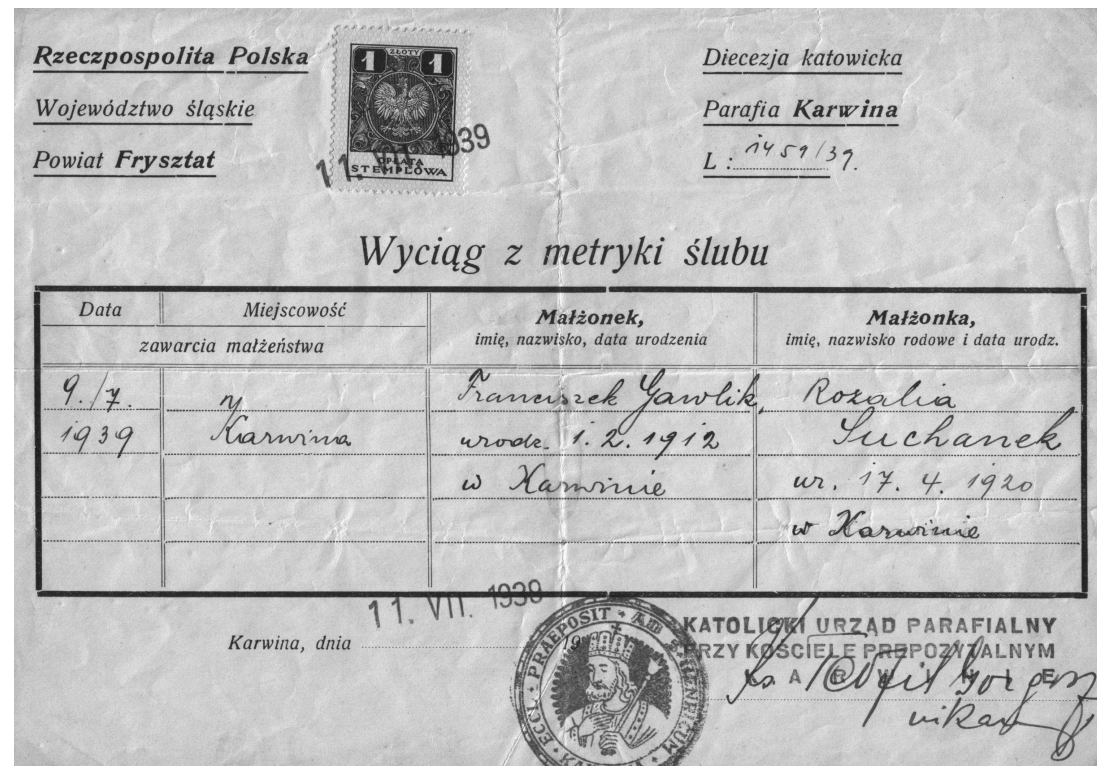 Rzeczpospolita Polska
Województwo śląskie
Powiat Frysztat
1 ZŁOTY 1
OPŁATA
STEMPLOWA
11. VII. 1939
Diecezja katowicka
Parafia Karwina
L : 1459/39.
Wyciąg z metryki ślubu
Data Miejscowość
zawarcia małżeństwa
Małżonek,
imię, nazwisko, data urodzenia
Małżonka,
imię, nazwisko rodowe i data urodz.
9./7.
1939
Karwina
Franciszek Gawlik,
urodz. 1. 2. 1912
w Karwinie
Rozalia
Suchanek
ur. 17. 4. 1920
w Karwinie
Karwina, dnia 11. VII. 1939 19
ECCL. PRAEPOSIT * AD
KATOLICKI URZĄD PARAFIALNY
PRZY KOŚCIELE PREPOZYTALNYM
KARWINIE
Ks.
wikary